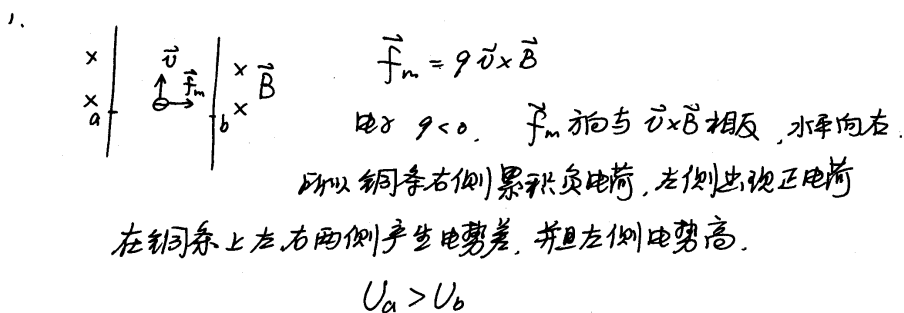 1.
× × v⃗ f⃗m ⊖ a b × × B⃗
f⃗m = q v⃗ × B⃗
电子 q<0, f⃗m 方向与 v⃗×B⃗ 相反, 水平向右.
所以铜条右侧累积负电荷, 左侧出现正电荷
在铜条上左、右两侧产生电势差, 并且左侧电势高.
Ua > Ub